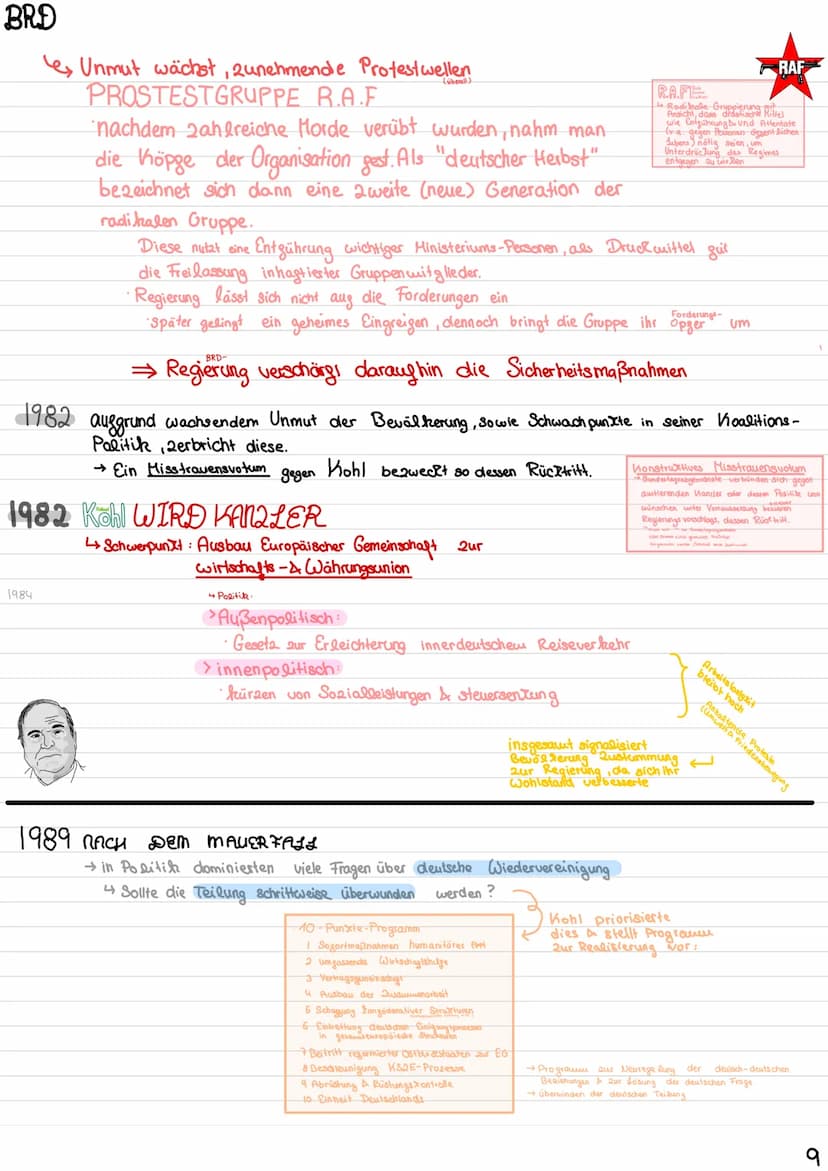 BRD
↳ Unmut wächst, zunehmende Protestwellen
(überall)
PROSTESTGRUPPE R.A.F
RAF
R.A.F
↳ Radikale Gruppierung mit
Ansicht, dass drastische Mittel
wie Entführungen und Attentate
(v.a. gegen Personen öffentlichen
Lebens) nötig seien, um
Unterdrückung des Regimes
entgegen zu wirken
·nachdem zahlreiche Morde verübt wurden, nahm man
die Köpfe der Organisation fest. Als "deutscher Herbst"
bezeichnet sich dann eine zweite (neue) Generation der
radikalen Gruppe.
Diese nutzt eine Entführung wichtiger Ministeriums-Personen, als Druckmittel für
die Freilassung inhaftierter Gruppenmitglieder.
· Regierung lässt sich nicht auf die Forderungen ein
·später gelingt ein geheimes Eingreifen, dennoch bringt die Gruppe ihr Forderungs-Opfer um
⇒ BRD-Regierung verschärft daraufhin die Sicherheitsmaßnahmen
1982 aufgrund wachsendem Unmut der Bevölkerung, sowie Schwachpunkte in seiner Koalitions-
Politik, zerbricht diese.
→ Ein Misstrauensvotum gegen Kohl bezweckt so dessen Rücktritt.
Konstruktives Misstrauensvotum
→ Bundestagsgemeinte verbünden sich gegen
amtierenden Kanzler oder dessen Politik und
wünschen unter Voraussetzung besseren
Regierungsvorschlags, dessen Rücktritt.
1982 Kohl WIRD KANZLER
↳ Schwerpunkt: Ausbau Europäischer Gemeinschaft zur
wirtschafts- & Währungsunion
1984
↳ Politik:
> Außenpolitisch:
· Gesetz zur Erleichterung innerdeutschem Reiseverkehr
> innenpolitisch:
· kürzen von Sozialleistungen & steuersenkung
Arbeitslosigkeit
bleibt hoch
Anhaltende Proteste
(Umwelt & Friedensbewegung
insgesamt signalisiert
Bevölkerung Zustimmung
zur Regierung, da sich ihr
Wohlstand verbesserte
1989 NACH DEM MAUERFALL
→ in Politik dominierten viele Fragen über deutsche Wiedervereinigung
↳ Sollte die Teilung schrittweise überwunden werden?
Kohl priorisierte
dies & stellt Programm
zur Realisierung vor:
10-Punkte-Programm
1 Sofortmaßnahmen humanitärer Art
2 umfassende Wirtschaftshilfe
3 Vertragsgemeinschaft
4 Ausbau der Zusammenarbeit
5 Schaffung konföderativer Strukturen
6 Einbettung deutschen Einigungsprozesses
in gesamteuropäische Strukturen
7 Beitritt reformierter Ostblockstaaten zur EG
8 Beschleunigung KSZE-Prozesse
9 Abrüstung & Rüstungskontrolle
10 Einheit Deutschlands
→ Programm zur Neuregelung der deutsch-deutschen
Beziehungen & zur Lösung der deutschen Frage
→ überwinden der deutschen Teilung
9